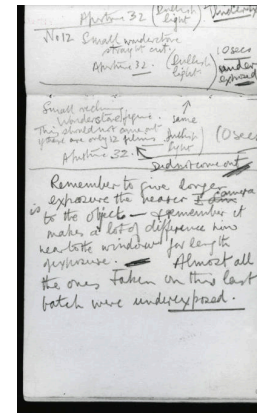 Aperture 32 (dullish light) Underexp
No 12 Small understone
straight out.
Aperture 32. (dullish light) 10 secs
under
exposed
Small reclining
same
This should not count
as there are only 12 films
dullish
light
(10 secs
Aperture 32.
did not come out
Remember to give longer
exposure the nearer camera
is to the object — remember it
makes a lot of difference how
near to the window for length
of exposure. Almost all
the ones taken on this last
batch were underexposed.